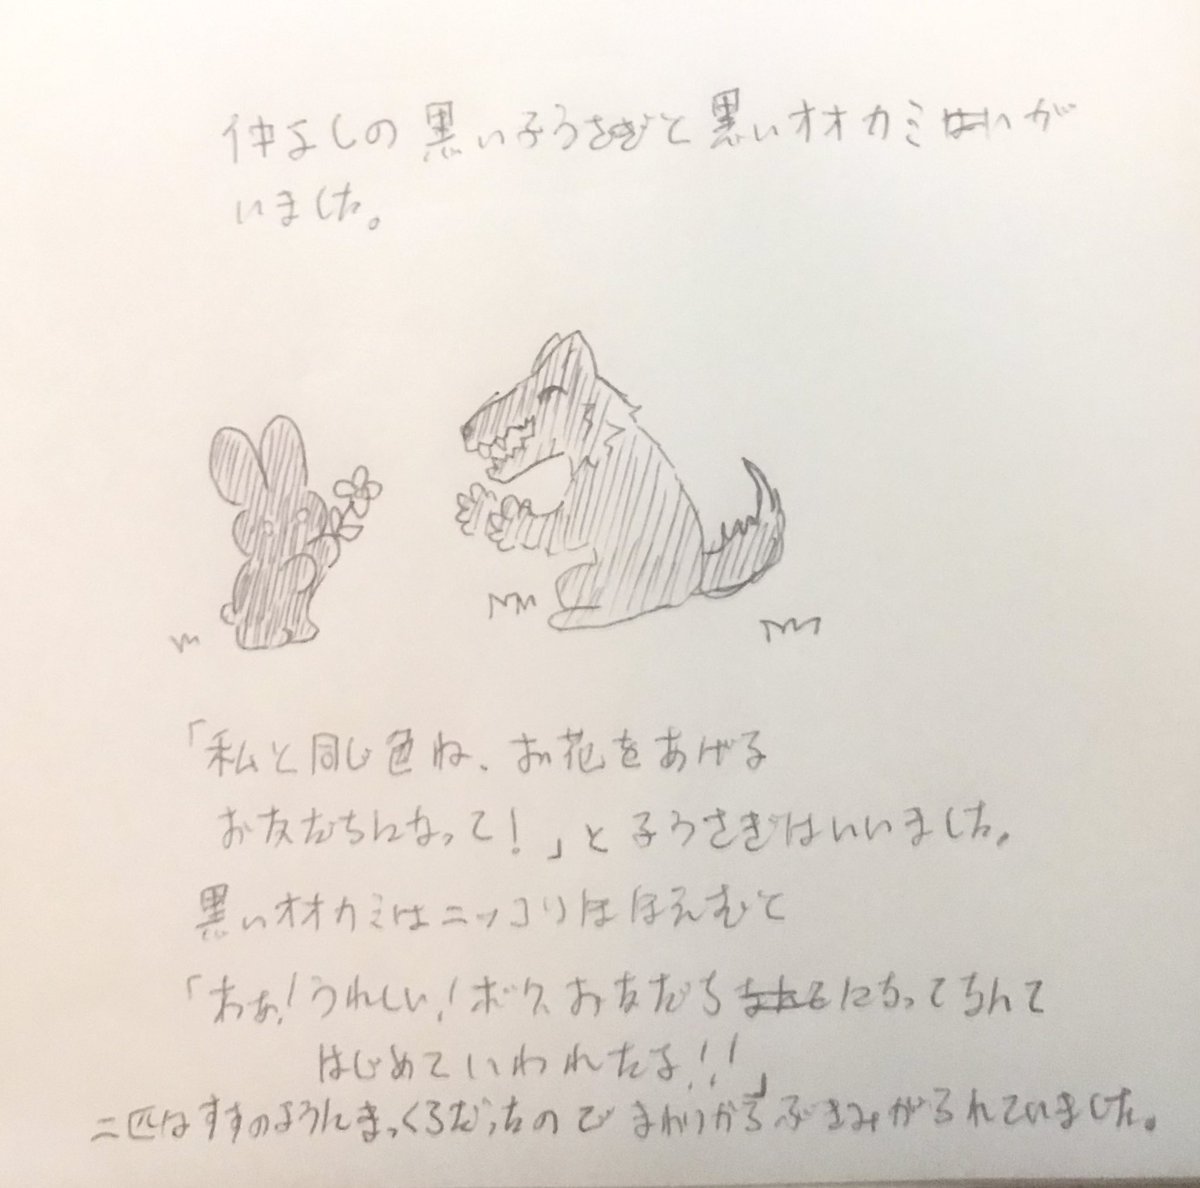 仲よしの黒い子うさぎと黒いオオカミが
いました。
「私と同じ色ね、お花をあげる
お友だちになって!」と子うさぎはいいました。
黒いオオカミはニッコリほほえむと
「わぁ!うれしい!ボクお友だちになってなんて
はじめていわれたよ!!」
二匹はすすのようにまっくろだったのでまわりからぶきみがられていました。